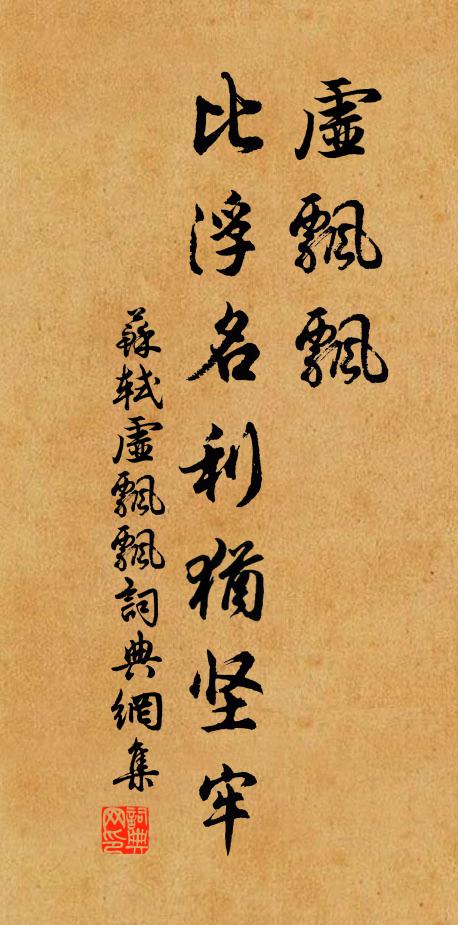 虛飄飄
比浮名利猶坚牢
蘇軾虛飄飄詞典網集
詞典网印